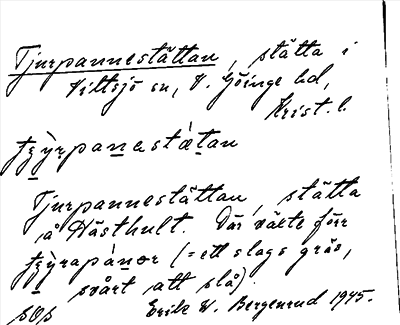 Tjurpannestättan, stätta i
Vittsjö sn, V. Göinge hd,
Krist. l.
Tjurpannestättan, stätta
å Hästhult. Där växte förr
(= ett slags gräs,
svårt att slå).
Erik W. Bergenrud 1945.